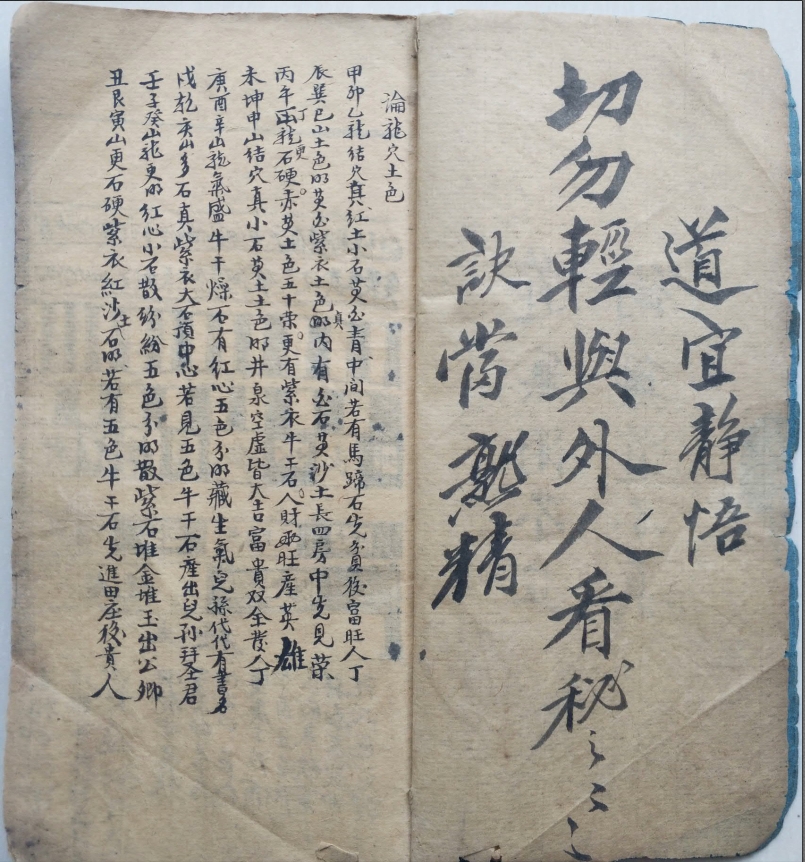 道宜静悟
切勿輕與外人看秘〻〻〻
訣當熟精
淪龍穴土色
甲卯乙龍结穴真紅土小石黄白青中间若有馬蹄石先貧後富旺人丁
辰巽巳山土色明黄白紫衣土色明真内有白石黄沙土長四房中先見荣
丙午丁龍石更硬赤黄土色五十荣更有紫衣牛干石人財両旺産英雄
未坤申山结穴真小石黄土土色明井泉空虚皆大吉富貴双全發人丁
庚酉辛山龍氣盛牛干燥石有紅心五色分明藏生氣兒孫代代有書名
戌乾亥山多石真紫衣大石頂中心若見五色牛干石産出兒孙拜圣君
壬子癸山龍更明紅心小石散纷紛五色分明散紫石堆金堆玉出公卿
丑艮寅山更石硬紫衣紅沙土石明若有五色牛干石先進田庄後貴人